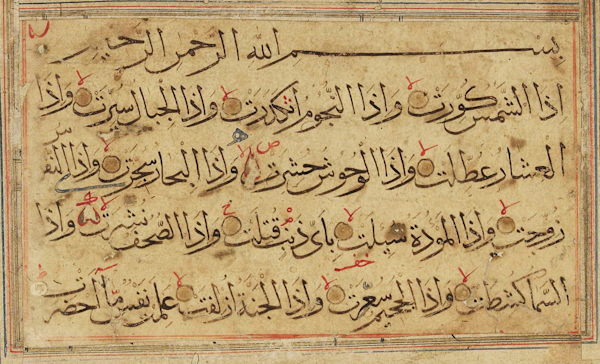 بسم الله الرحمن الرحيم
اذا الشمس كورت واذا النجوم انكدرت واذا الجبال سيرت واذا
العشار عطلت واذا الوحوش حشرت واذا البحار سجرت واذا النفوس
زوجت واذا المودة سيلت باى ذنب قتلت واذا الصحف نشرت واذا
السما كشطت واذا الجحيم سعرت واذا الجنة ازلفت علمت نفس ما احضرت